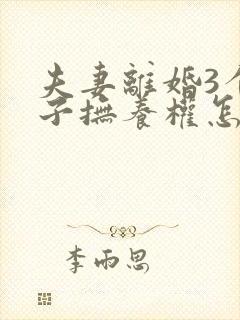 夫妻離婚3個
子撫養權怎
李雨思